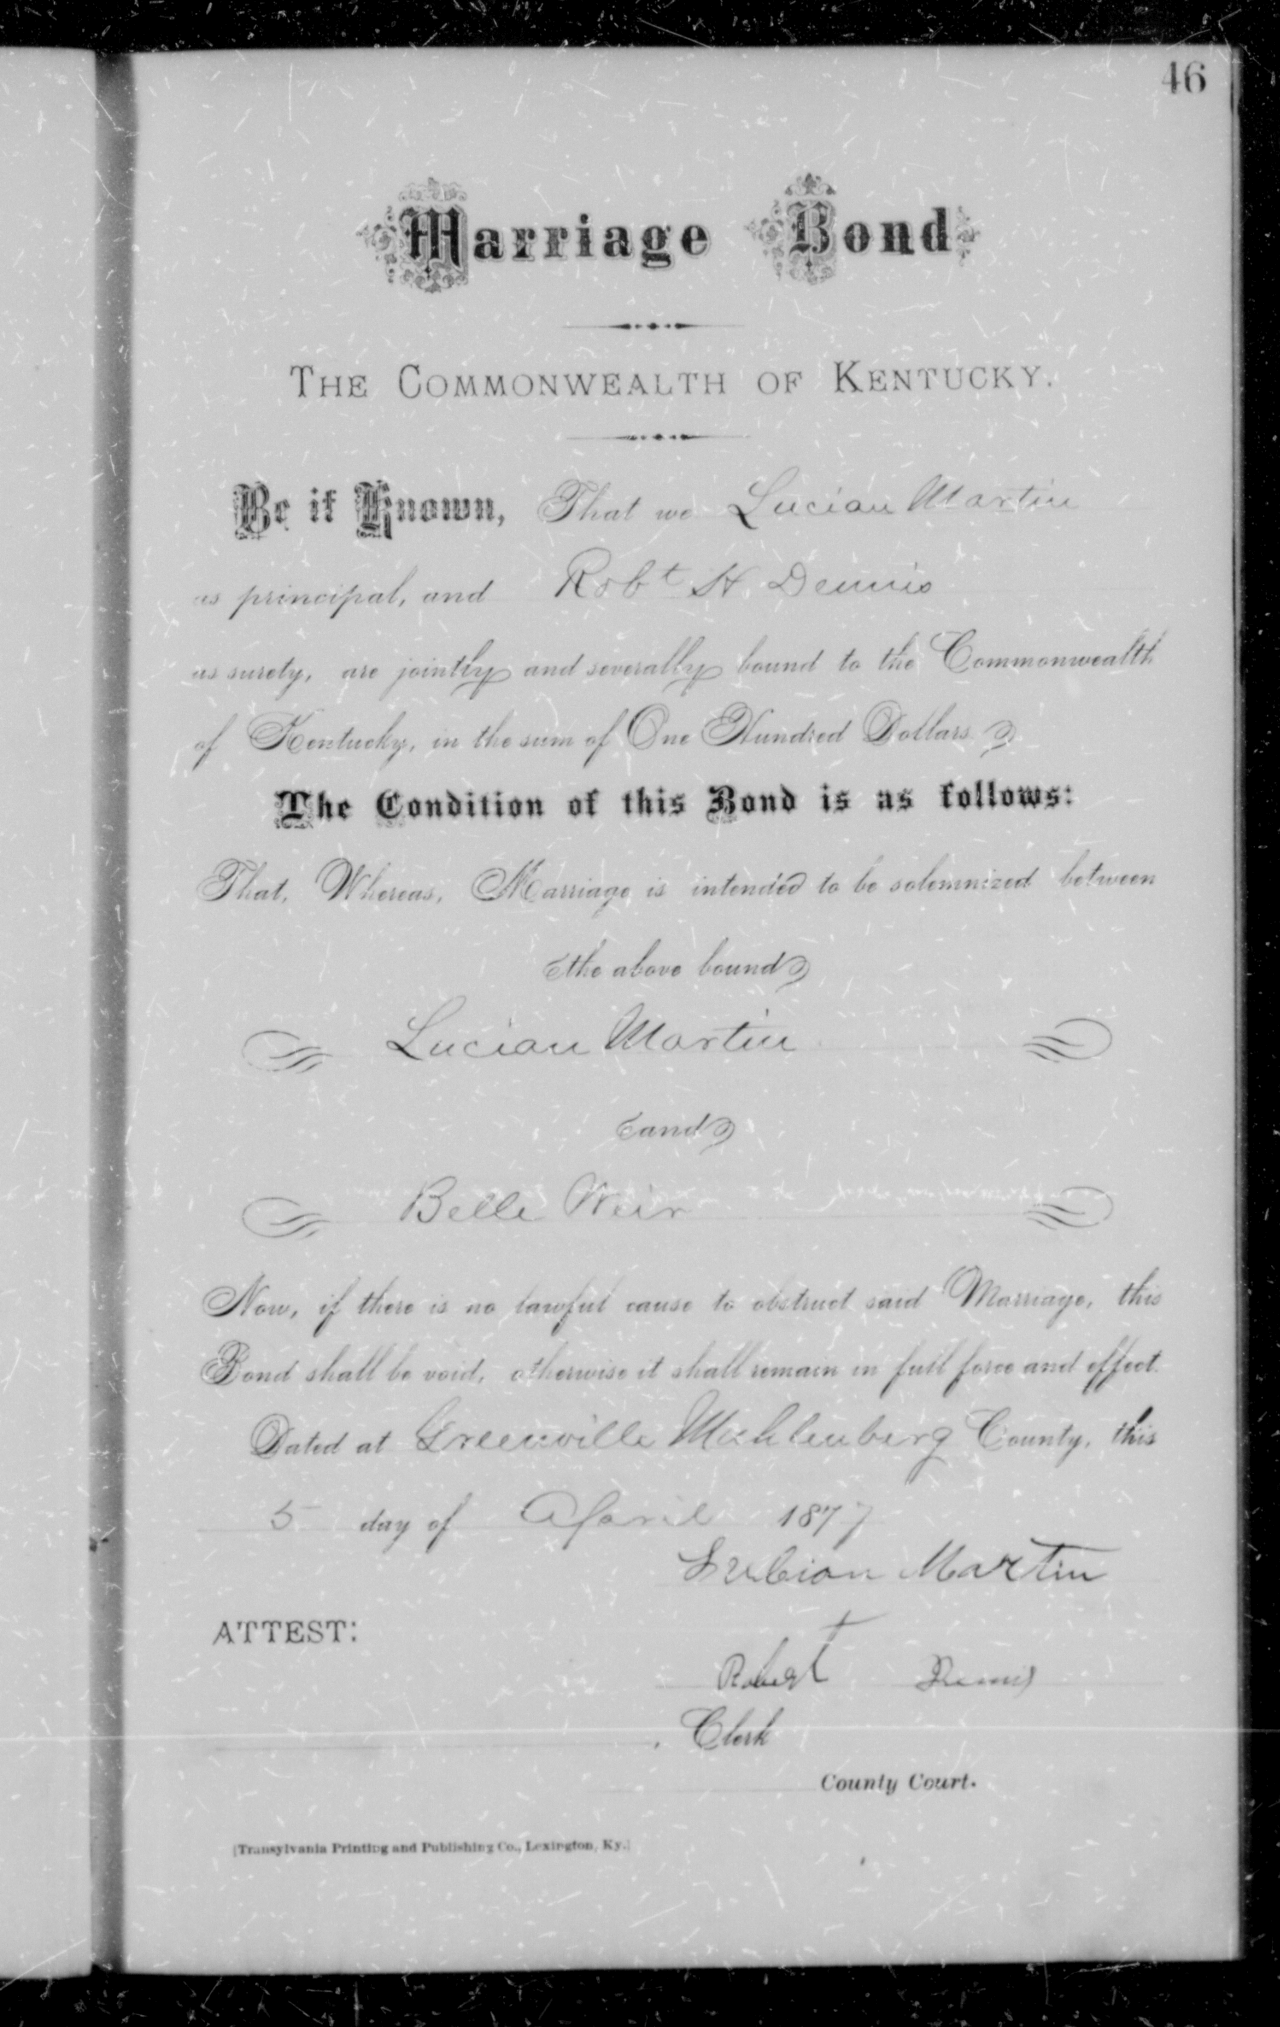 46
Marriage Bond
THE COMMONWEALTH OF KENTUCKY.
Be it Known, That we Lucian Martin
as principal, and Robt H. Dennis
as surety, are jointly and severally bound to the Commonwealth
of Kentucky, in the sum of One Hundred Dollars.
The Condition of this Bond is as follows:
That, Whereas, Marriage is intended to be solemnized between
the above bound
Lucian Martin
and
Belle Weir
Now, if there is no lawful cause to obstruct said Marriage, this
Bond shall be void, otherwise it shall remain in full force and effect.
Dated at Greenville Muhlenberg County, this
5 day of April 1877
Lucian Martin
ATTEST:
Robert Dennis
, Clerk
County Court.
[Transylvania Printing and Publishing Co., Lexington, Ky.]